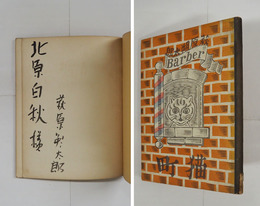 北原白秋様
萩原朔太郎
萩原朔太郎作
Barber
猫町